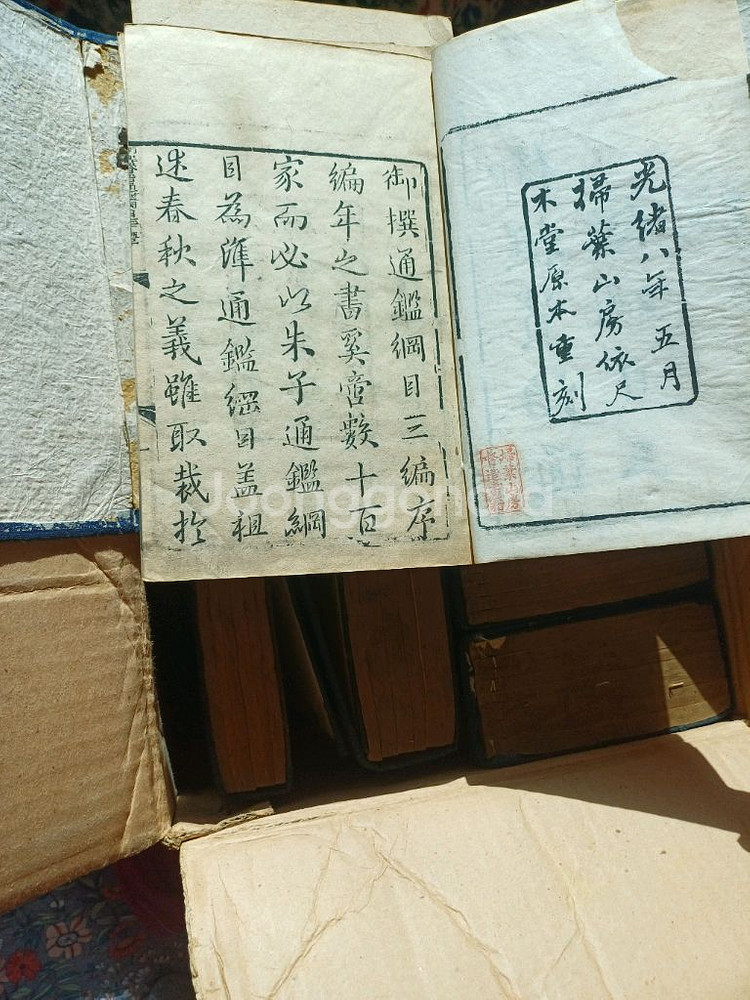 光緒八年五月
掃葉山房依尺
木堂原本重刻
御撰通鑑綱目三編序
編年之書奚啻數十百
家而必以朱子通鑑綱
目為準通鑑綱目蓋祖
述春秋之義雖取裁於
Joonggonara